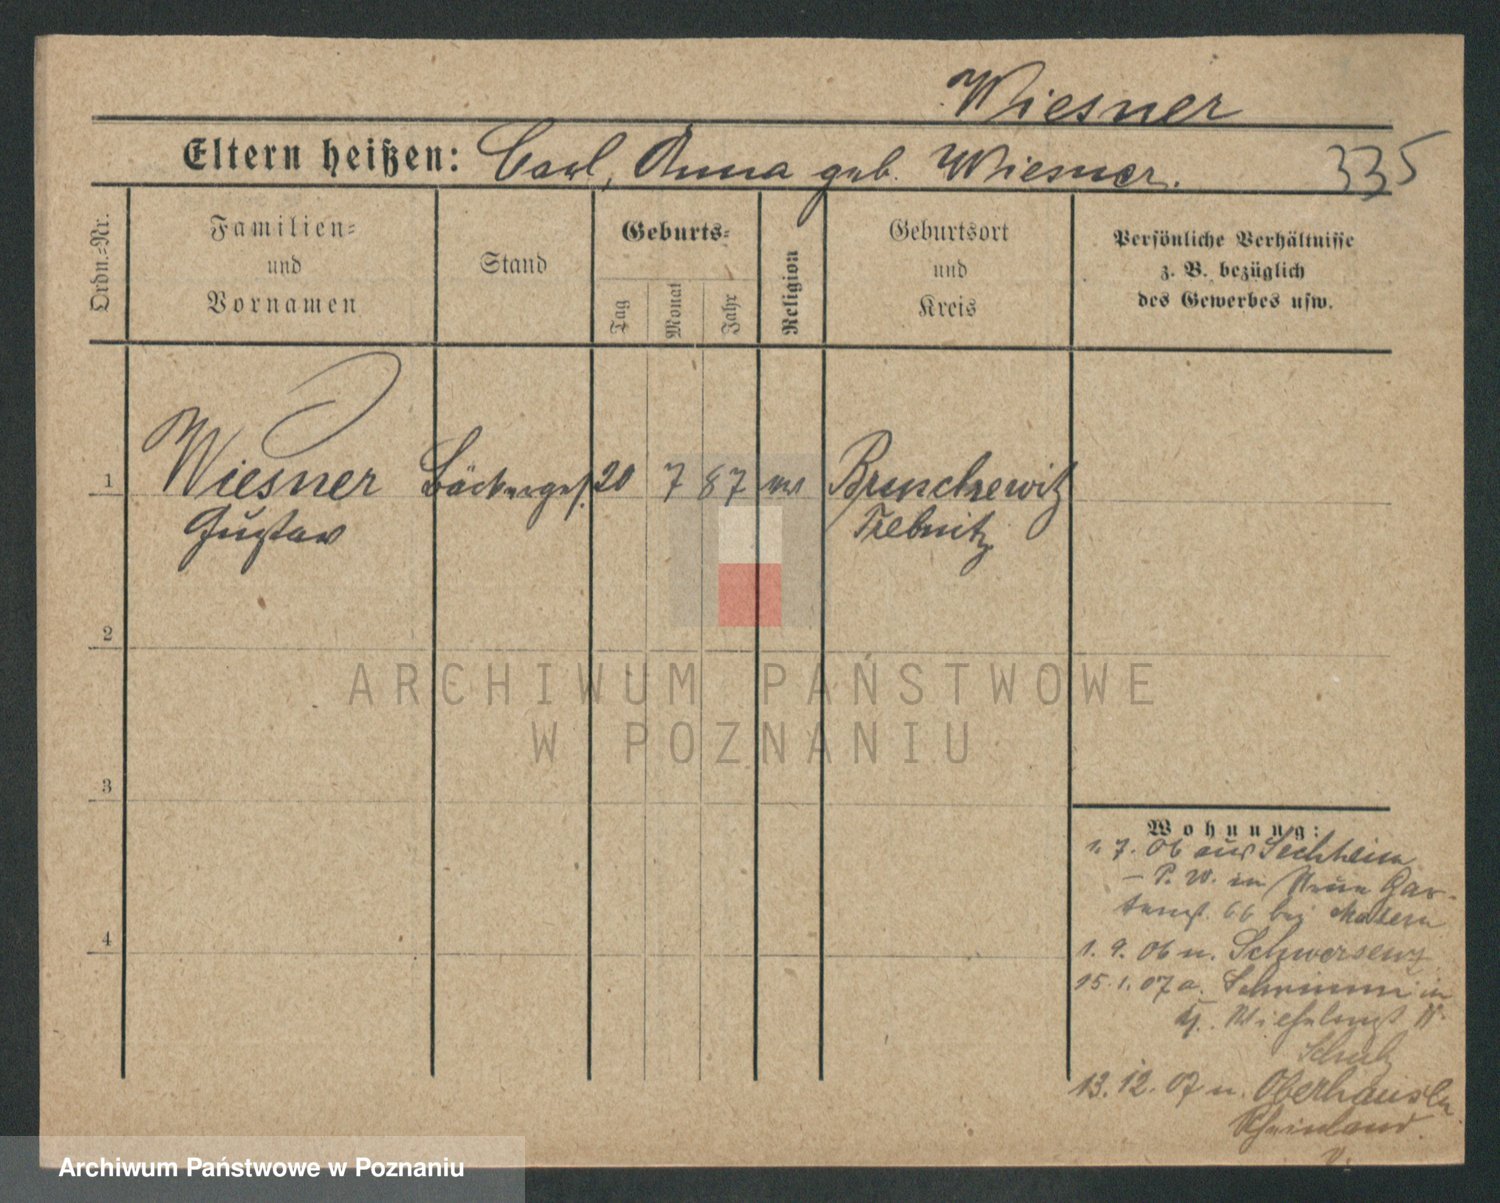 Wiesner
Eltern heißen: Carl, Anna geb. Wiesner.
335
Ordn.-Nr.
Familien-
und
Vornamen
Stand
Geburts-
Tag
Monat
Jahr
Religion
Geburtsort
und
Kreis
Persönliche Verhältnisse
z. B. bezüglich
des Gewerbes usw.
1
Wiesner
Gustav
Bäckerges.
20
7
87
Bruschewitz
Trebnitz
2
3
4
ARCHIWUM PAŃSTWOWE
W POZNANIU
Wohnung:
1. 7. 06 aus
– P. W. in Neue Gar-
tenst. 66 bei
1. 9. 06 n. Schwersenz
15. 1. 07 a. Schrimm in
Schulz
13. 12. 07 n. Oberhausen
Rheinland
v.
Archiwum Państwowe w Poznaniu